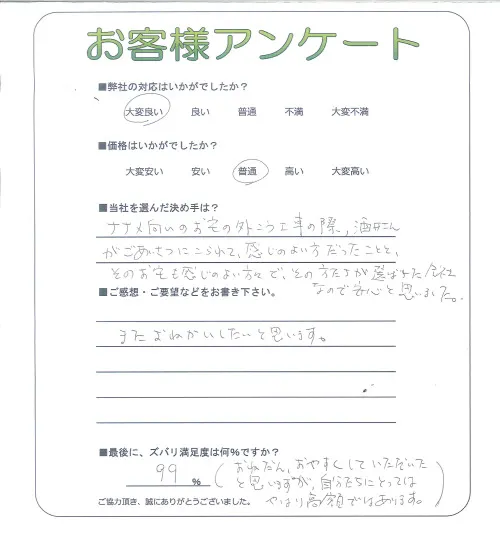 お客様アンケート
■弊社の対応はいかがでしたか？
大変良い 良い 普通 不満 大変不満
■価格はいかがでしたか？
大変安い 安い 普通 高い 大変高い
■当社を選んだ決め手は？
ナナメ向いのお宅の外こう工事の際、酒井さん
がごあいさつにこられて、感じのよい方だったことと、
そのお宅も感じのよい方々で、その方たちが選ばれた会社
なので安心と思いました。
■ご感想・ご要望などをお書き下さい。
またおねがいしたいと思います。
■最後に、ズバリ満足度は何％ですか？
99 ％
(おねだん、おやすくしていただいた
と思いますが、自分たちにとっては
やはり高額ではあります。)
ご協力頂き、誠にありがとうございました。